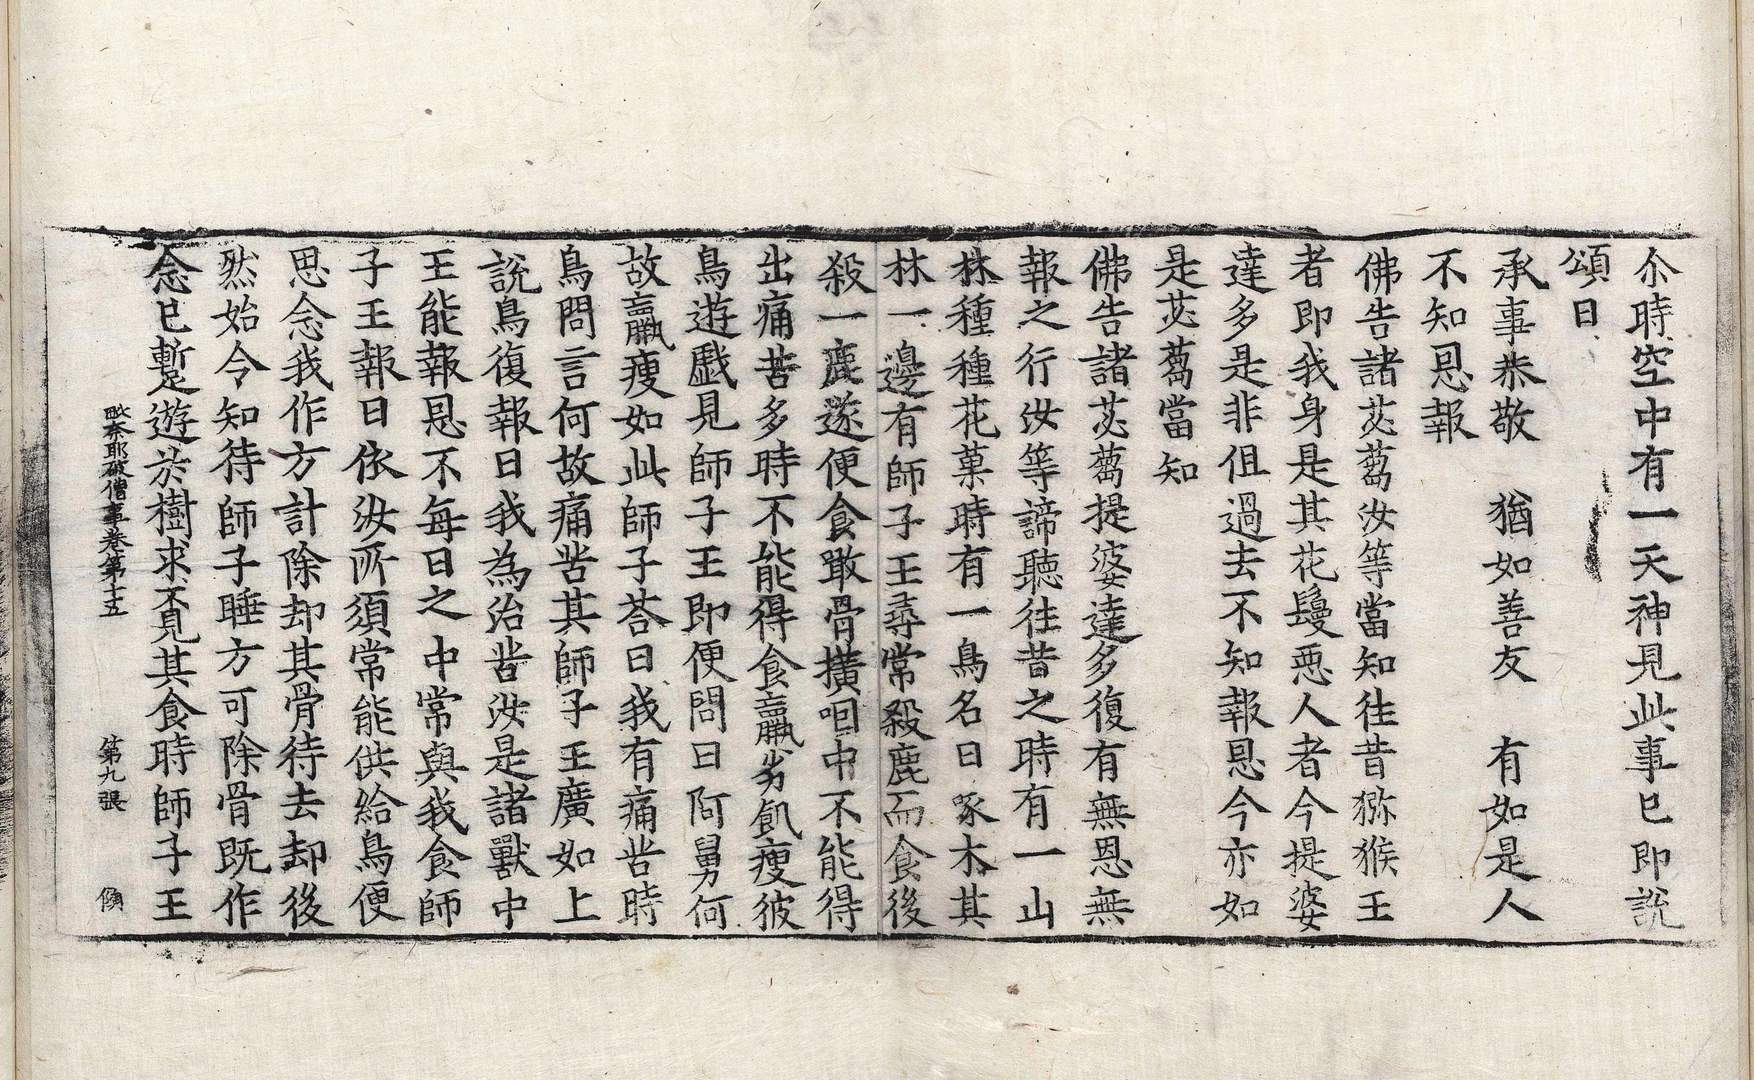 尒時空中有一天神見此事已即說
頌曰
承事恭敬　猶如善友　有如是人
不知恩報
佛告諸苾蒭汝等當知往昔獼猴王
者即我身是其花鬘悪人者今提婆
達多是非但過去不知報恩今亦如
是苾蒭當知
佛告諸苾蒭提婆達多復有無恩無
報之行汝等諦聽往昔之時有一山
林種種花菓時有一鳥名曰啄木其
林一邊有師子王尋常殺鹿而食後
殺一鹿遂便食噉骨橫咽中不能得
出痛苦多時不能得食羸劣飢瘦彼
鳥遊戱見師子王即便問曰阿舅何
故羸瘦如此師子荅曰我有痛苦時
鳥問言何故痛苦其師子王廣如上
說鳥復報曰我為治苦汝是諸獸中
王能報恩不每日之中常與我食師
子王報曰依汝所須常能供給鳥便
思念我作方計除却其骨待去却後
然始令知待師子睡方可除骨既作
念已蹔遊於樹求不見其食時師子王
毗奈耶破僧事卷第十五　第九張　傾